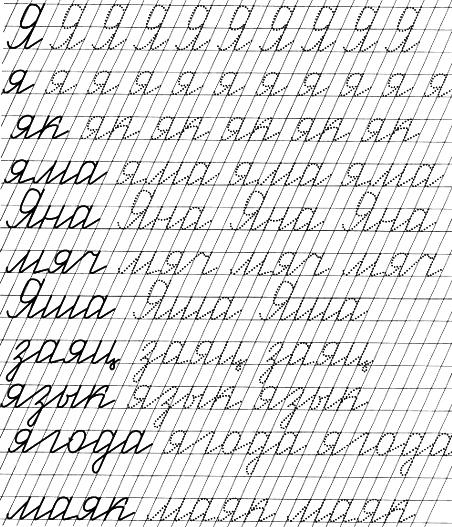 Я Я Я Я Я Я Я Я Я Я
я я я я я я я я я я я
як як як як як як
яма яма яма яма
Яна Яна Яна Яна
мяч мяч мяч мяч
Яша Яша Яша
заяц заяц заяц
язык язык язык
ягода ягода ягода
маяк маяк маяк